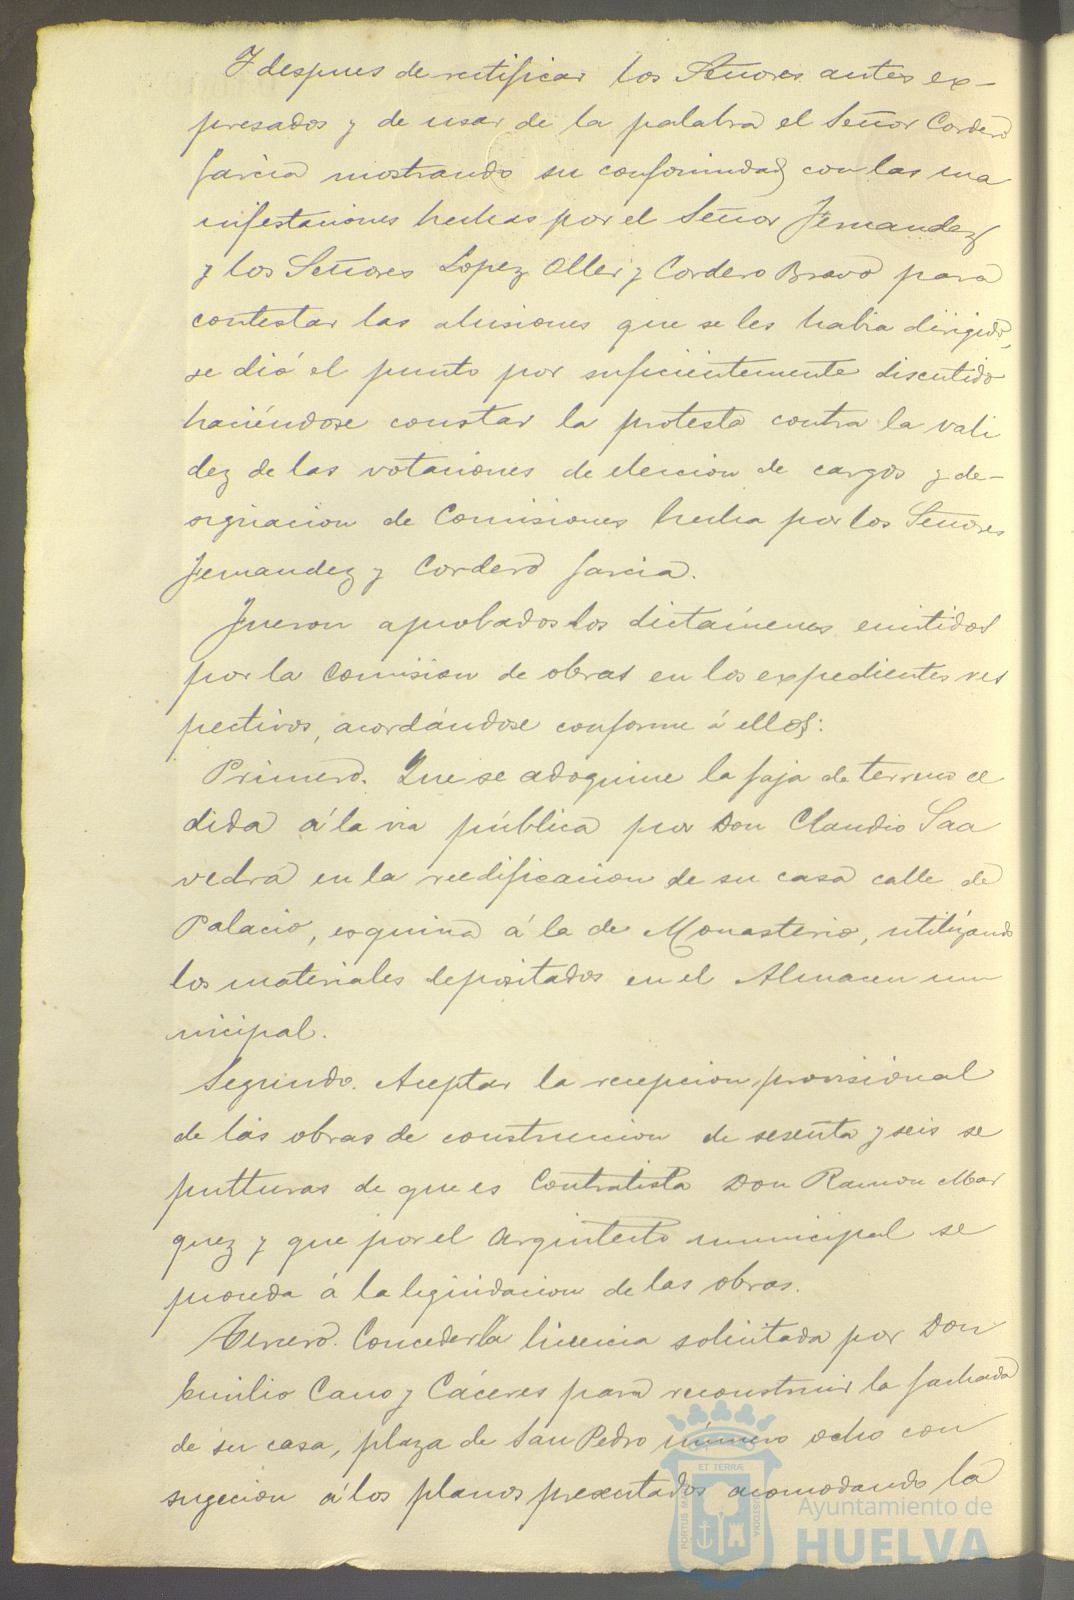 Y despues de rectificar los Señores antes ex-
presados y de usar de la palabra el Señor Cordero
Garcia mostrando su conformidad con las ma
nifestaciones hechas por el Señor Fernandez
y los Señores Lopez Oller y Cordero Bravo para
contestar las alusiones que se les habia dirigido,
se dió el punto por suficientemente discutido
haciéndose constar la protesta contra la vali
dez de las votaciones de eleccion de cargos y de-
signacion de Comisiones hecha por los Señores
Fernandez y Cordero Garcia.
Fueron aprobados los dictámenes emitidos
por la Comision de obras en los expedientes res
pectivos, acordándose conforme á ellos:
Primero. Que se adoquine la faja de terreno ce
dida á la via pública por Don Claudio Saa
vedra en la reedificacion de su casa calle de
Palacio, esquina á la de Monasterio, utilizando
los materiales depositados en el Almacen mu
nicipal.
Segundo. Aceptar la recepcion provisional
de las obras de construccion de sesenta y seis se
pulturas de que es Contratista Don Ramon Mar
quez y que por el Arquitecto municipal se
proceda á la liquidacion de las obras.
Tercero. Conceder la licencia solicitada por Don
Emilio Cano y Cáceres para reconstruir la fachada
de su casa, plaza de San Pedro número ocho con
sugecion á los planos presentados acomodando la
ET TERRÆ
PORTUS MARIS
CUSTODIA
Ayuntamiento de
HUELVA